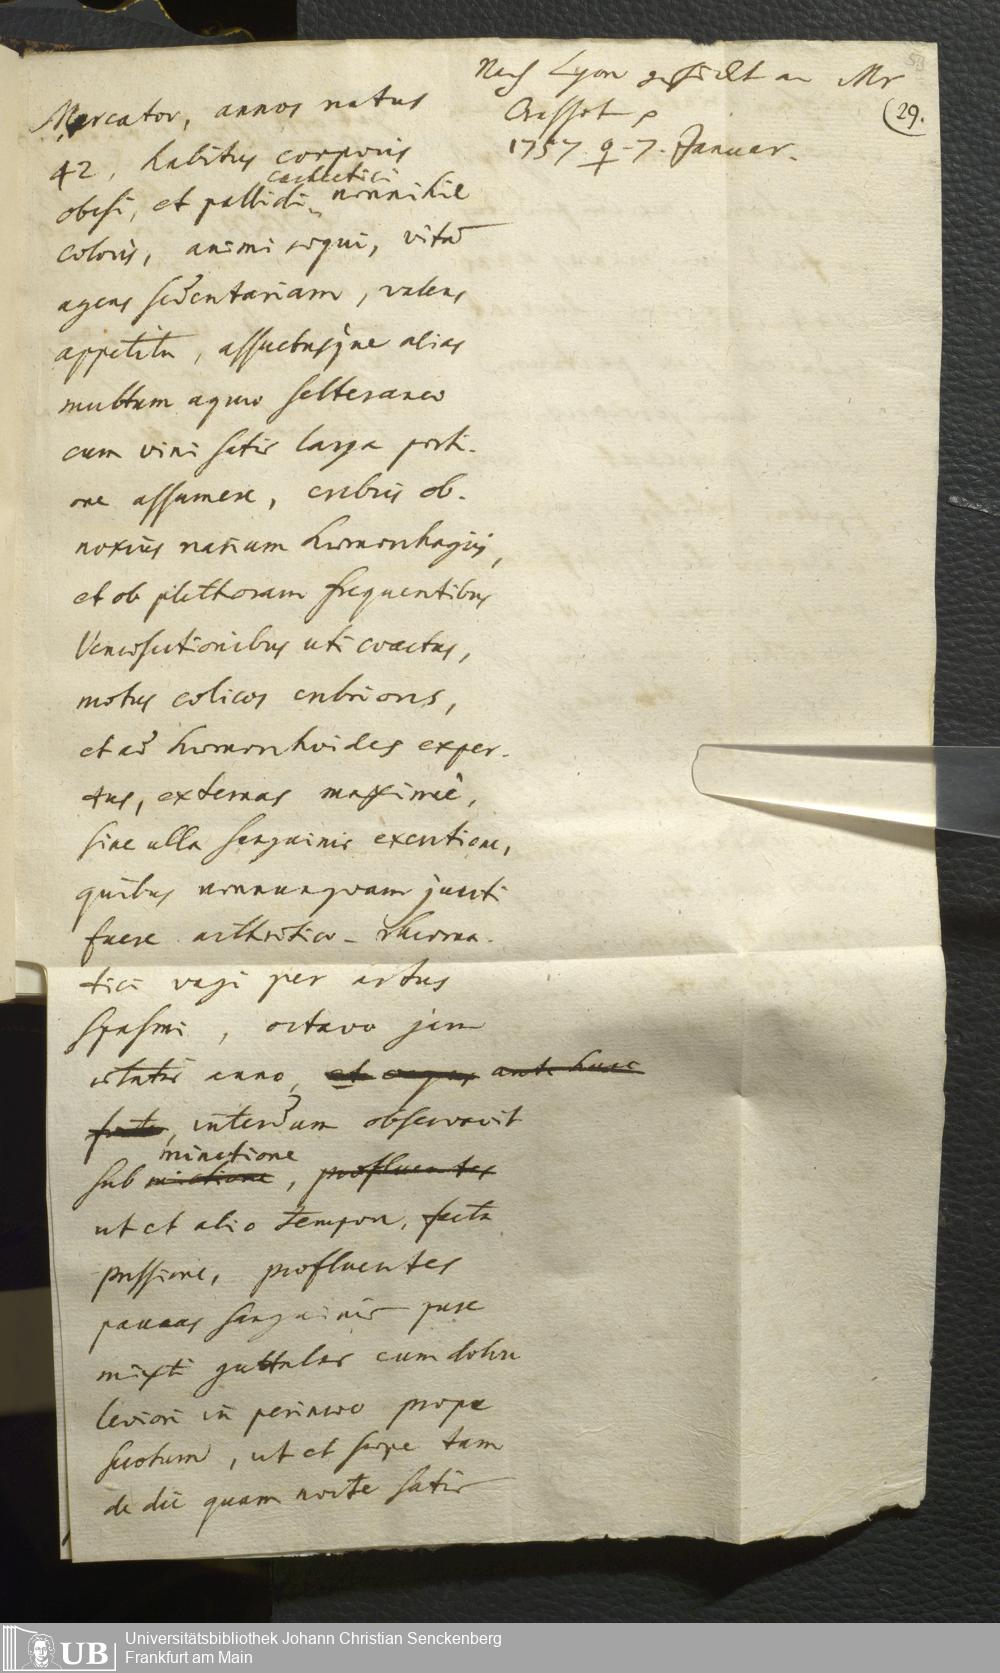 Nach Lyon geschickt an Mr
Crassot p
1757 ♀ 7. Januar.
58
29.
Mercator, annos natus
42, habitus corporis
cachectici
obesi, et pallidi nonnihil
coloris, animi aequi, vitam
agens sedentariam, valens
appetitu, assuetusque alias
multum aquae selteranae
cum vini satis larga porti-
one assumere, crebris ob-
noxius narium haemorrhagiis,
et ob plethoram frequentibus
Venaesectionibus uti coactus,
motus colicos crebriores,
et ad haemorrhoides exper-
tus, externas maxime,
sine ulla sanguinis excretione,
quibus nonnunquam juncti
fuere arthritico-rheuma-
tici vagi per artus
spasmi, octavo jam
aetatis anno, et ante hunc
interdum observavit
minctione
sub mictione, profluentes
ut et alio tempore, facta
pressione, profluentes
paucas sanguinis pure
mixti guttulas cum dolore
leviori in perinaeo prope
scrotum, ut et saepe tam
de die quam nocte satis
Universitätsbibliothek Johann Christian Senckenberg
Frankfurt am Main
UB